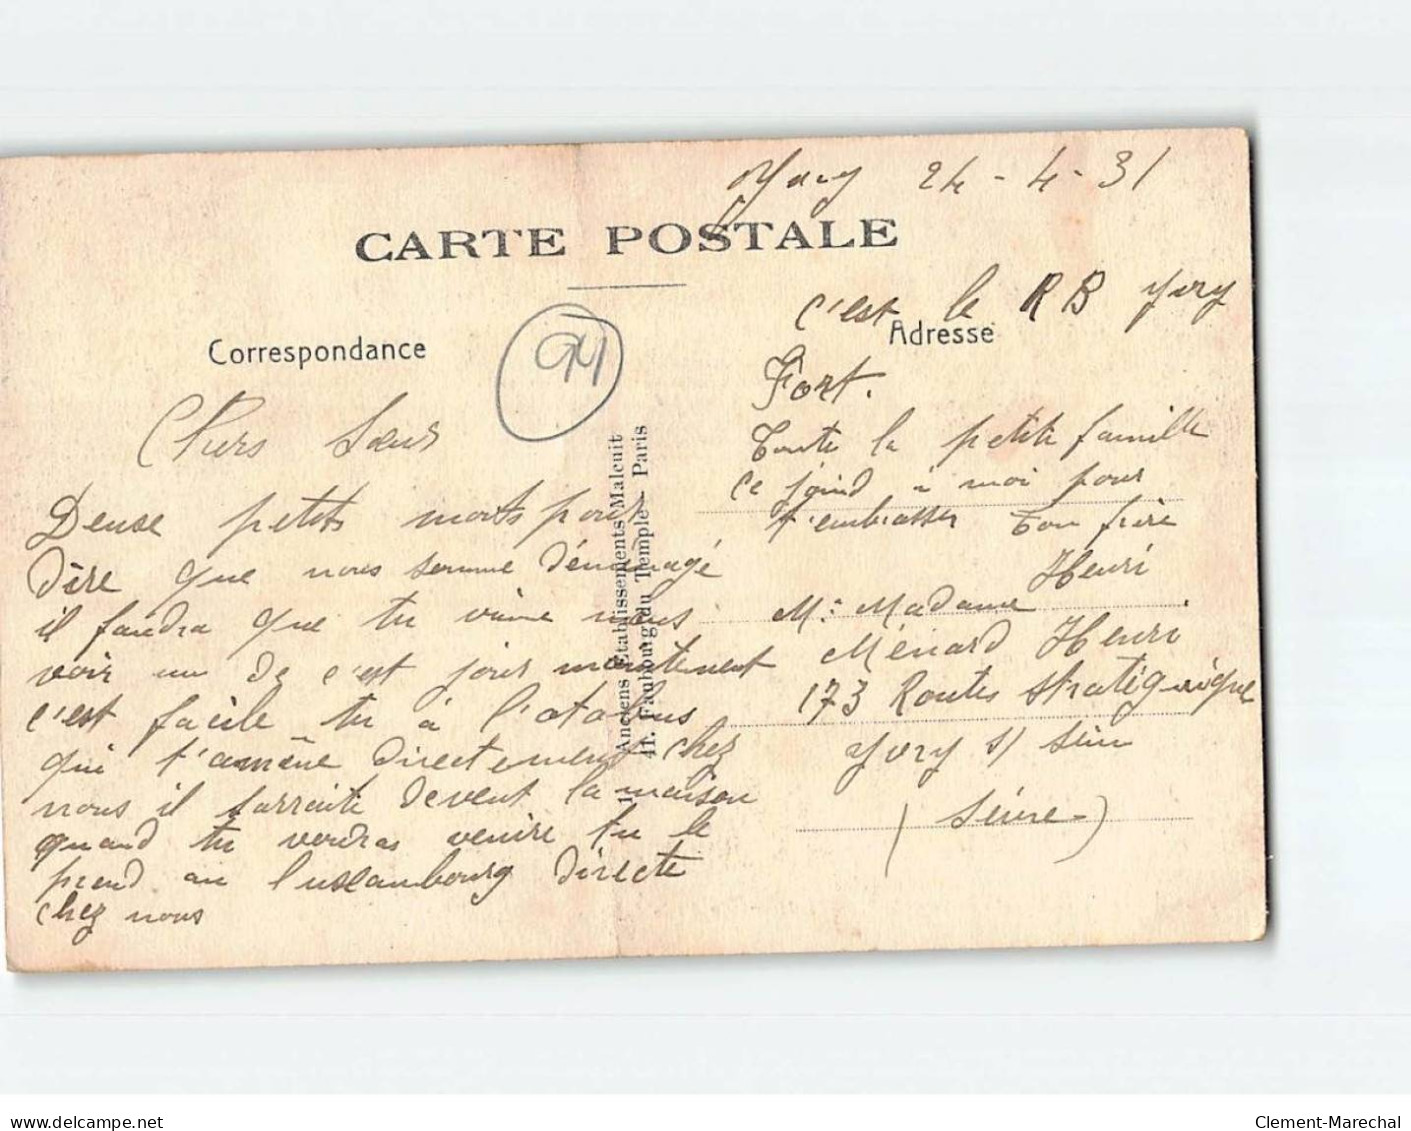 Yvry 24-4-31
CARTE POSTALE
c'est le RB Yvry
Correspondance
Adresse
94
Fort.
Chers Sœurs
Toute la petite famille
ce joind à moi pour
Deuse petits mots pour
t'embrasser ton frère
Henri
dire que nous somme déménagé
il faudra que tu vienne nous
voir un de c'est jour maintenent
c'est facile tu à l'otobus
qui t'amène directement chez
nous il s'arraite devent la maison
quand tu voudras venire tu le
prend au Luxambourg directe
chez nous
Mr Madame
Ménard Henri
173 Routes Stratégique
Yvry s/ Seine
(Seine)
Anciens Etablissements Malcuit
11, Faubourg du Temple - Paris
www.delcampe.net
Clement-Marechal